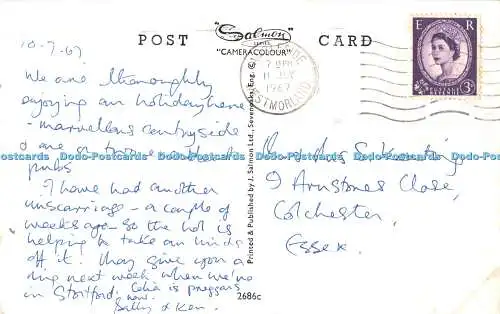 10-7-67
POST CARD
Salmon
SERIES
"CAMERACOLOUR"
We are thoroughly
enjoying our holiday here
- marvellous countryside
pubs
I have had another
miscarriage - a couple of
weeks ago - so the hol is
helping to take our minds
off it! May give you a
ring next week when we're
in Stortford. Celia is preggers
now.
Sally & Ken.
Printed & Published by J. Salmon Ltd., Sevenoaks, Eng. ©
2686c
7 PM
11 JLY
1967
WESTMORLAND
E R
POSTAGE
REVENUE
3D
9 Arnstones Close,
Colchester,
Essex.
Postcards Dodo-Postcards Dodo-Postcards Dodo-Postcards Dodo-Postcards